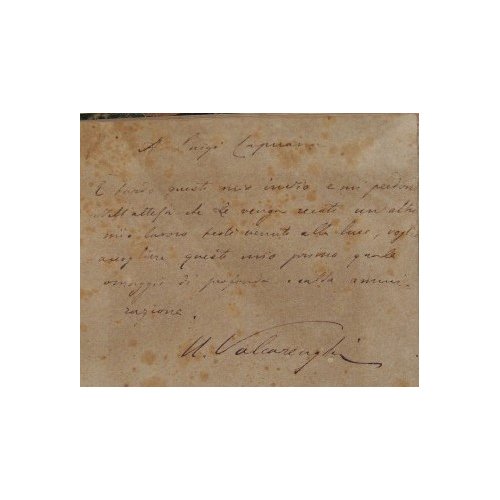 A Luigi Capuana
È tardo questo mio invio e mi perdoni
Nell'attesa che Le venga recato un altro
mio lavoro testè venuto alla luce, voglia
accogliere questo mio primo quale
omaggio di profonda e calda ammi-
razione.
U. Valcarenghi